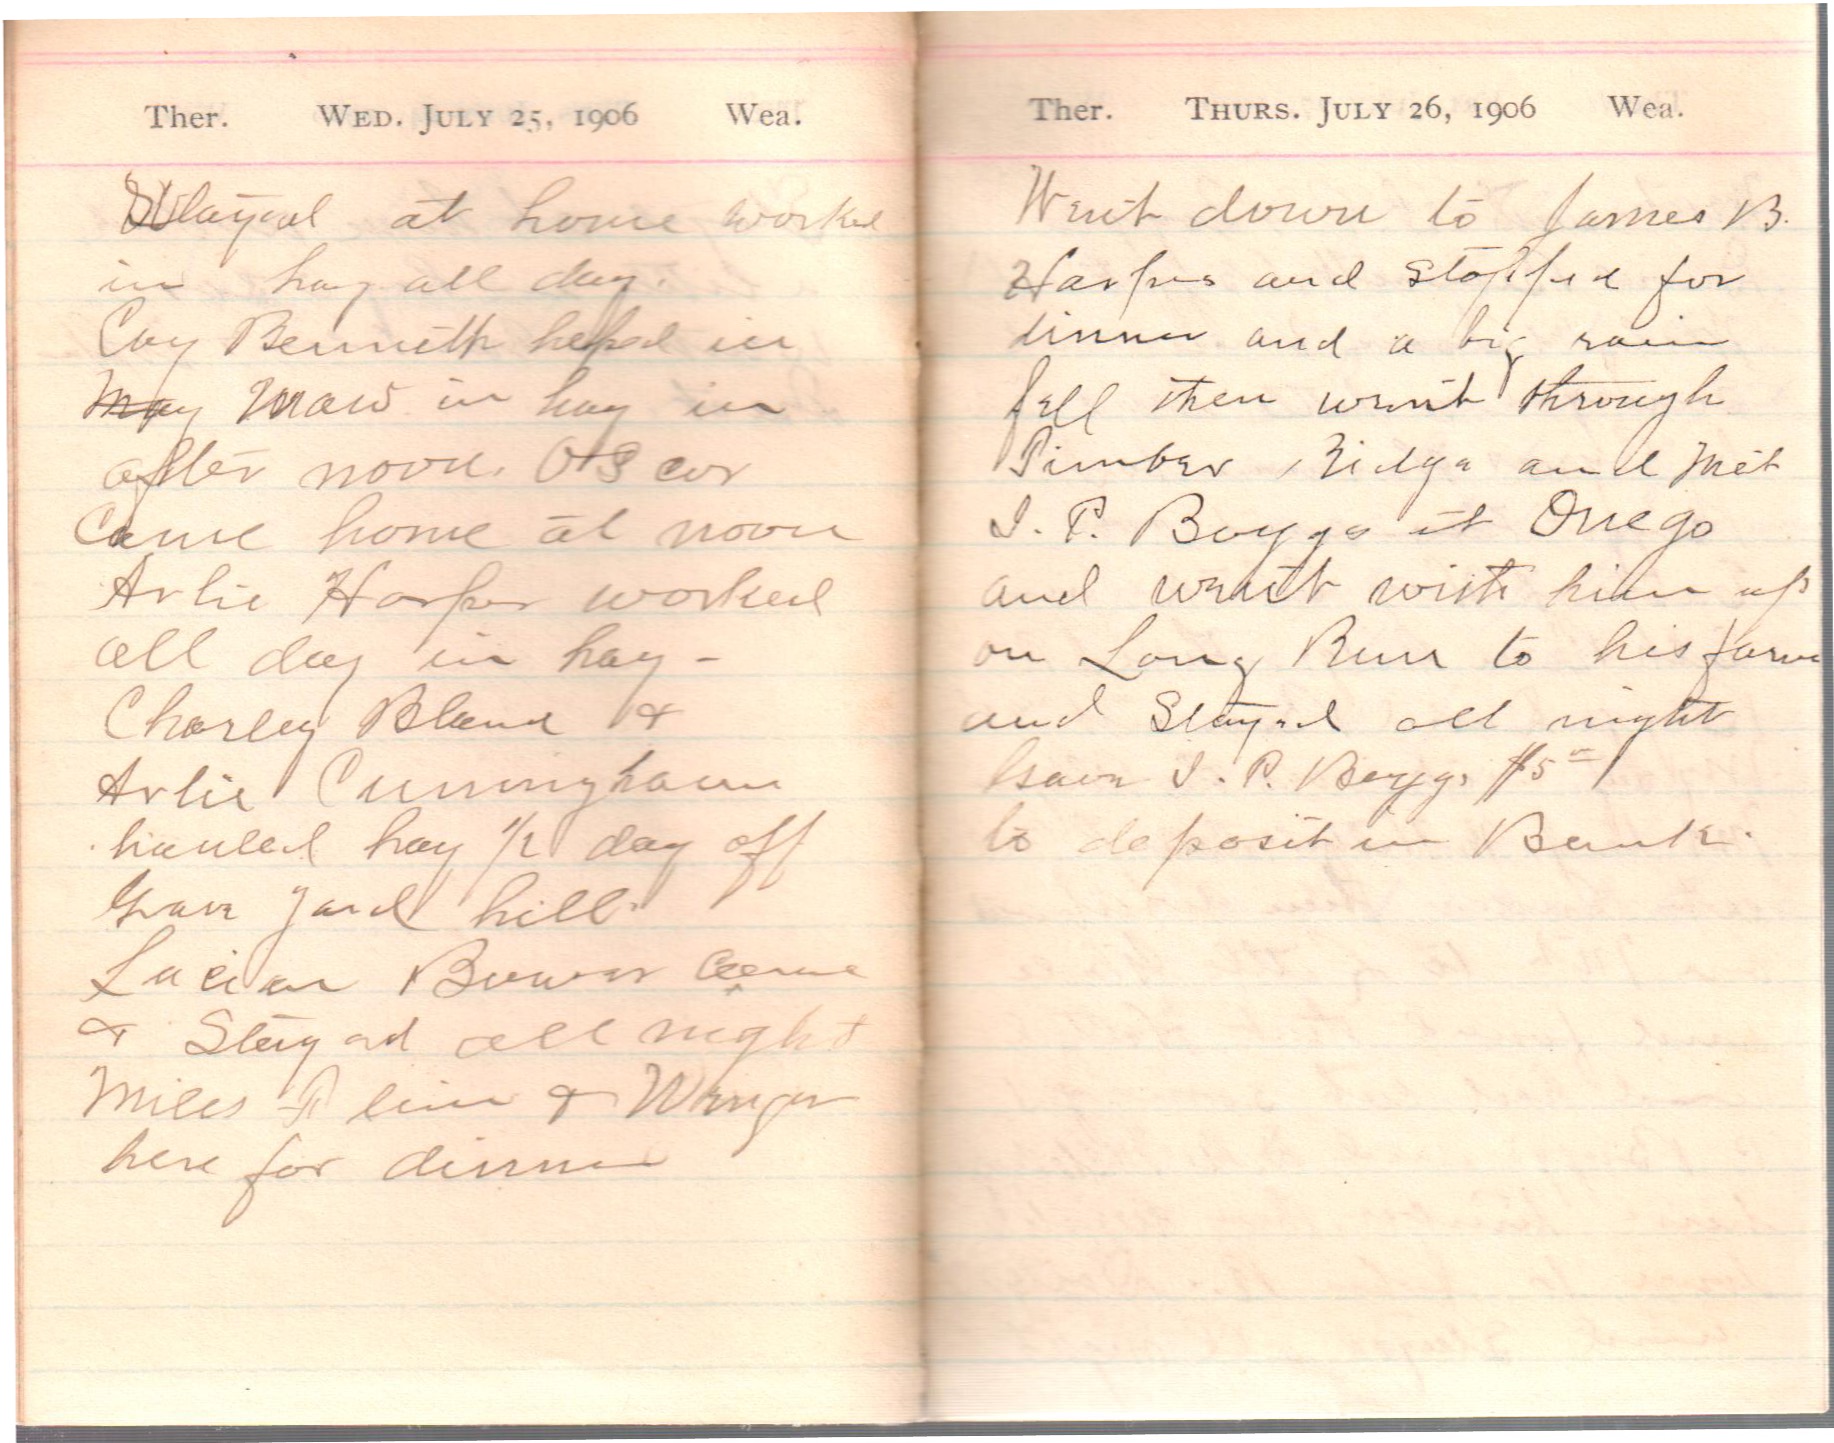 Ther. WED. JULY 25, 1906 Wea.
Stayed at home worked
in hay all day.
Coy Bennett helped in
May Maw in hay in
after noon. Oscar
Came home at noon
Arlie Harper worked
all day in hay -
Charley Bland &
Arlie Cunningham
hauled hay 1/2 day off
Grave yard hill.
Lucian Bower Came
& Stayed all night
Miles & Winger
here for dinner
Ther. THURS. JULY 26, 1906 Wea.
Went down to James B.
Harpers and stopped for
dinner and a big rain
fell then went through
Timber Ridge and Met
I. P. Boggs at Onego
and went with him up
on Long Run to his farm
and Stayed all night
Gave I. P. Boggs $5
to deposit in Bank.